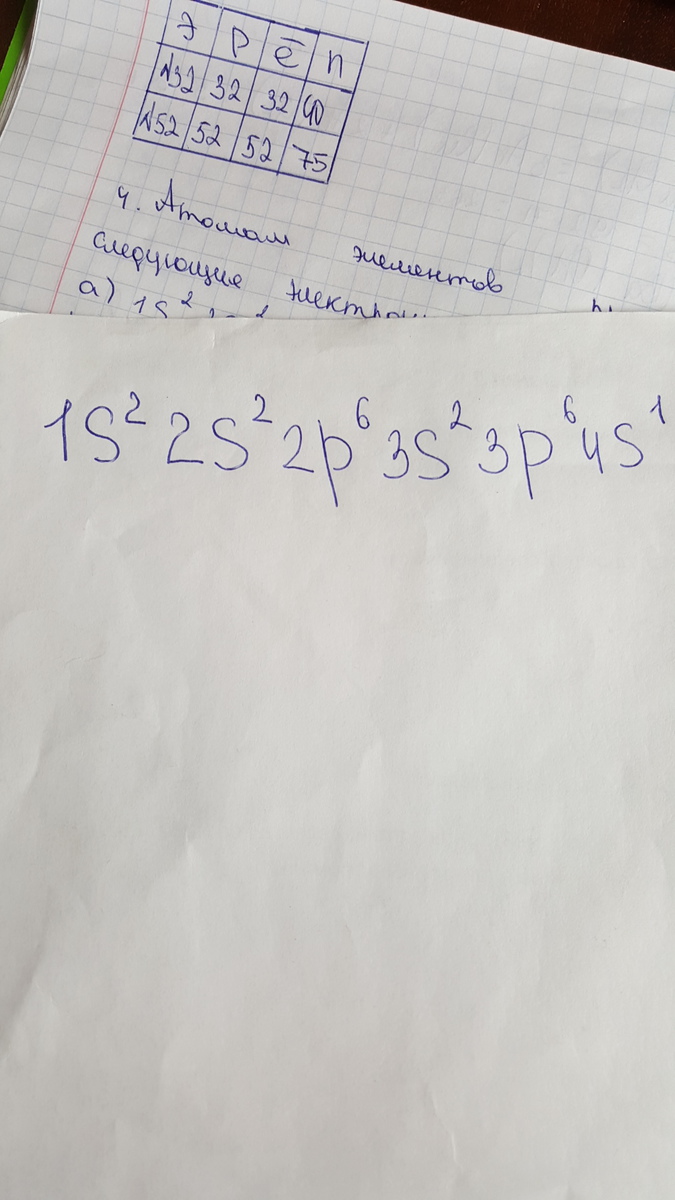 Э p ē n
N32 32 32 40
N52 52 52 75
4. Атомам элементов
следующие
а) 1S²
1S² 2S² 2p⁶ 3S² 3p⁶ 4S¹